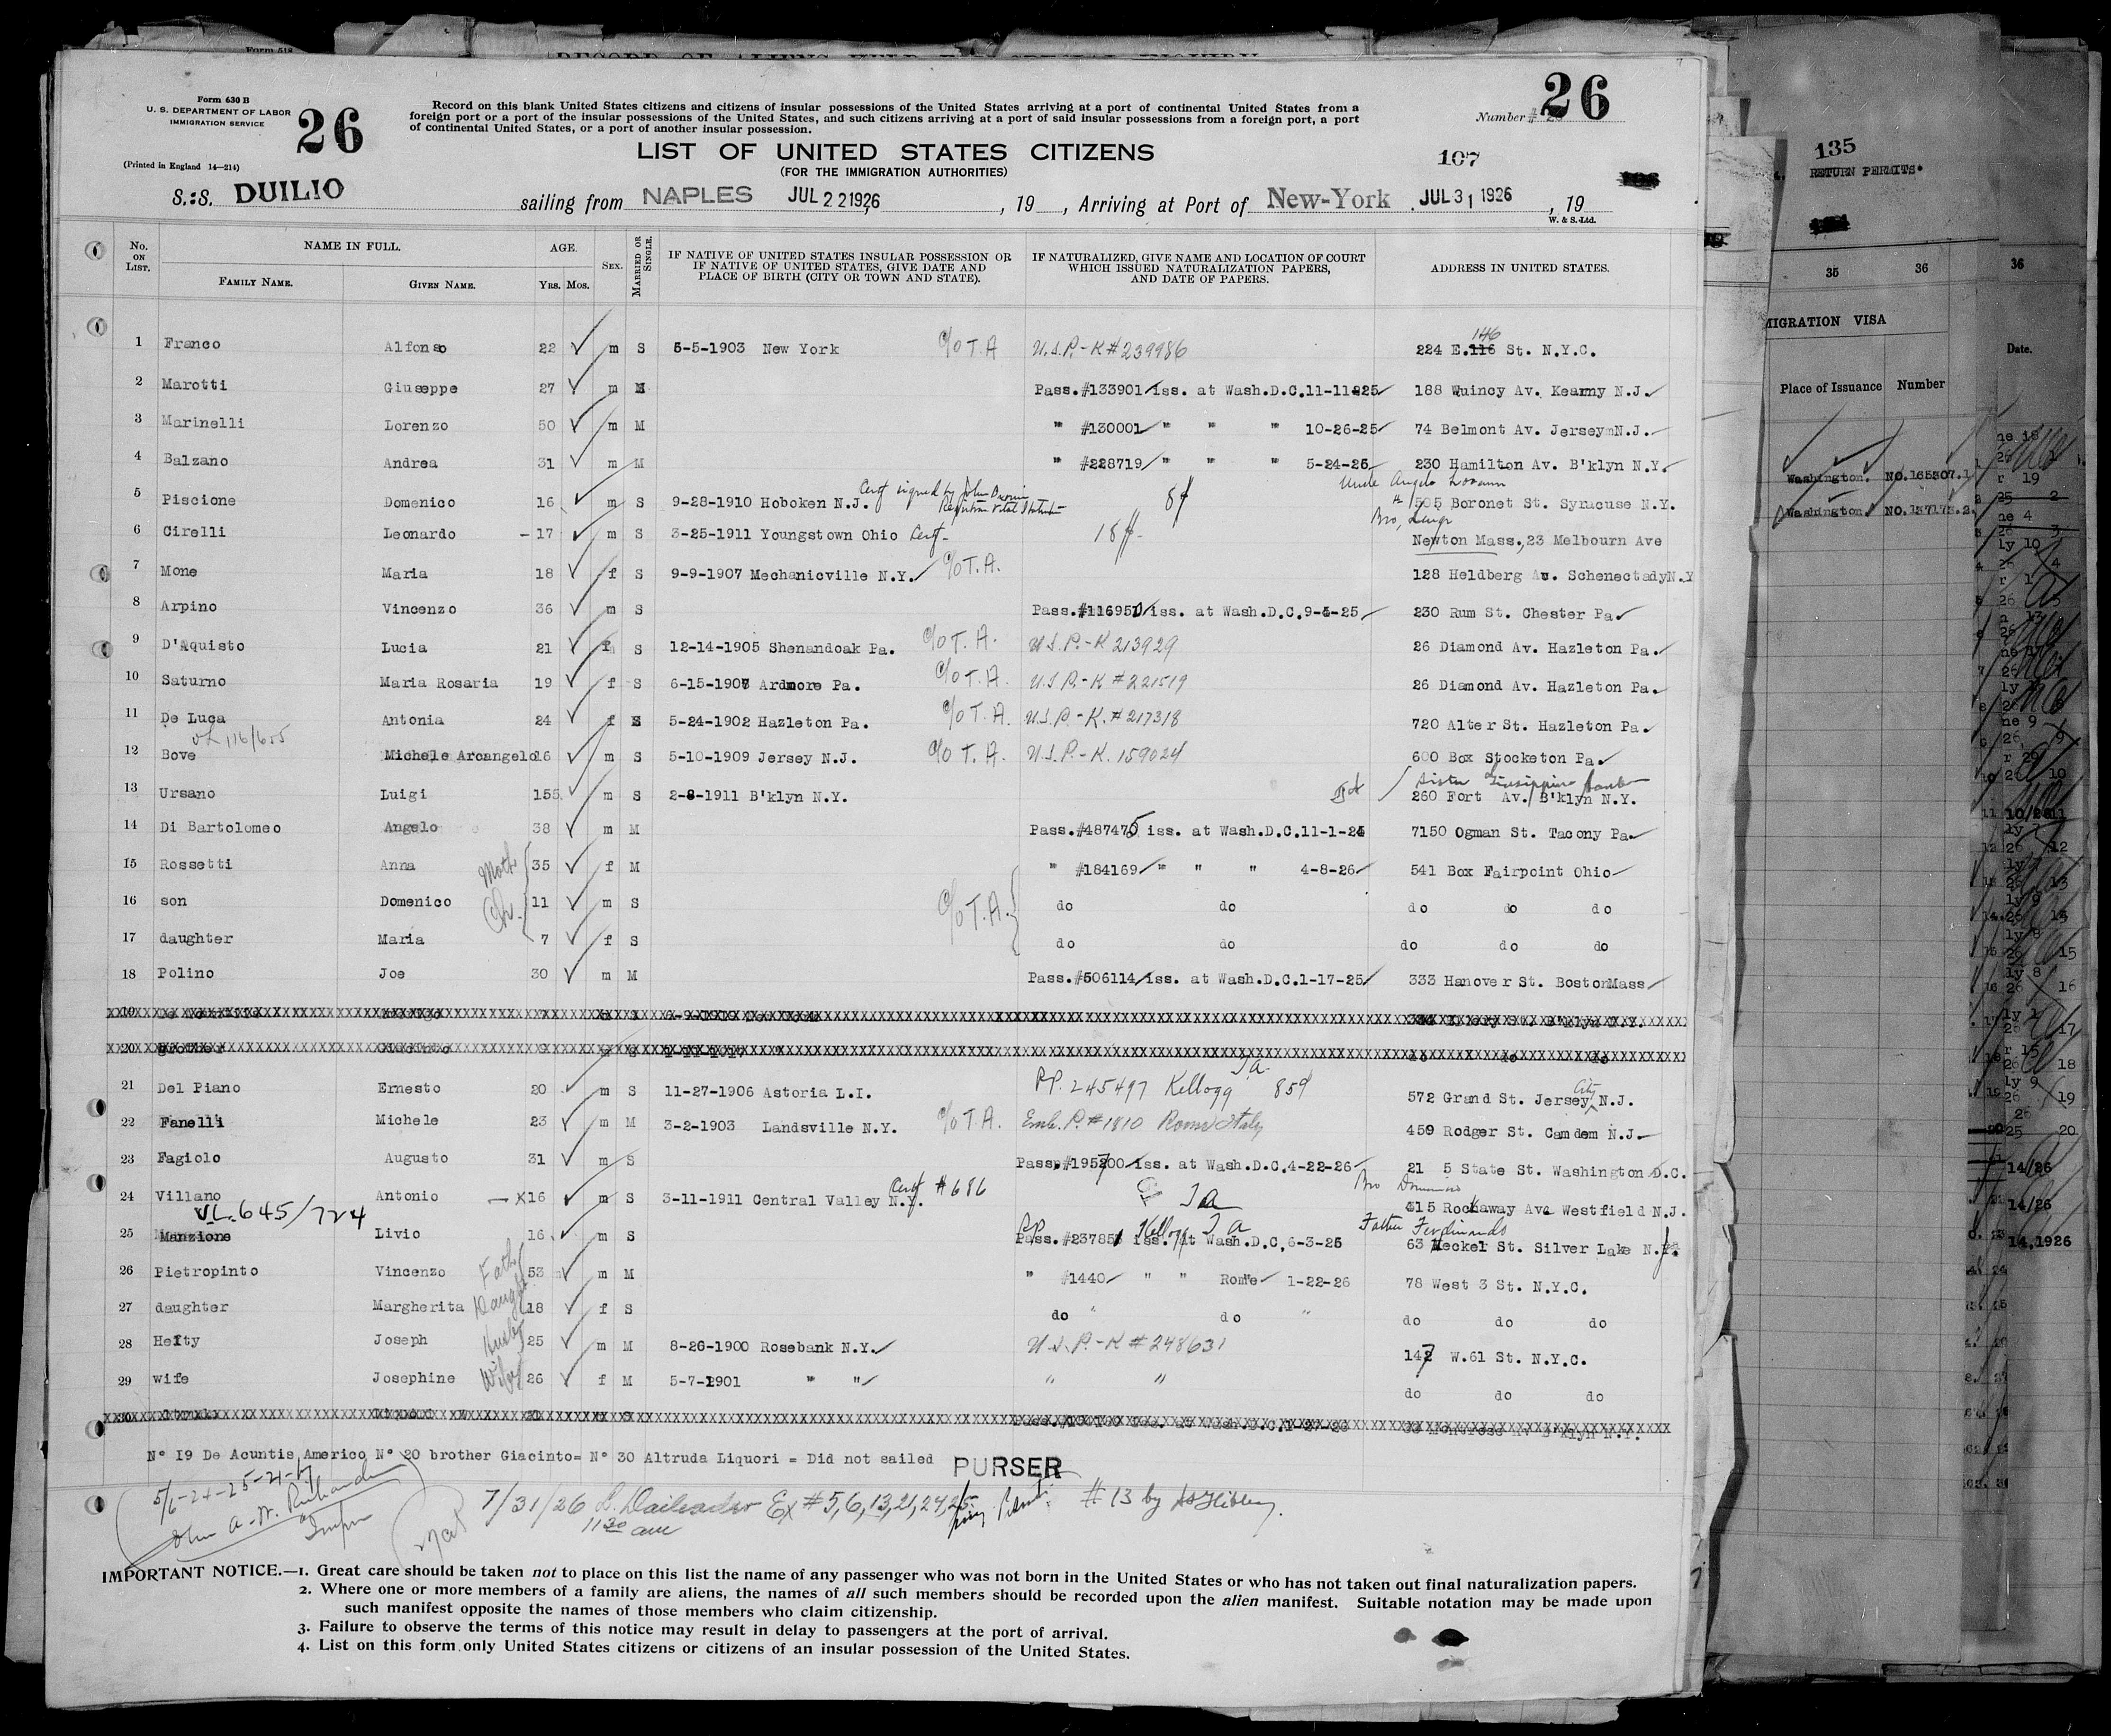 Form 630 B
U. S. DEPARTMENT OF LABOR
IMMIGRATION SERVICE
(Printed in England 14—214)
26
Record on this blank United States citizens and citizens of insular possessions of the United States arriving at a port of continental United States from a
foreign port or a port of the insular possessions of the United States, and such citizens arriving at a port of said insular possessions from a foreign port, a port
of continental United States, or a port of another insular possession.
Number # 26
LIST OF UNITED STATES CITIZENS
(FOR THE IMMIGRATION AUTHORITIES)
107
S.:S. DUILIO sailing from NAPLES JUL 22 1926, 19 , Arriving at Port of New-York JUL 31 1926, 19
W. & S. Ltd.
No. ON LIST. NAME IN FULL. AGE. SEX. MARRIED OR SINGLE. IF NATIVE OF UNITED STATES INSULAR POSSESSION OR IF NATIVE OF UNITED STATES, GIVE DATE AND PLACE OF BIRTH (CITY OR TOWN AND STATE). IF NATURALIZED, GIVE NAME AND LOCATION OF COURT WHICH ISSUED NATURALIZATION PAPERS, AND DATE OF PAPERS. ADDRESS IN UNITED STATES.
FAMILY NAME. GIVEN NAME. YRS. MOS.
1 Franco Alfonso 22 m S 5-5-1903 New York c/o T.A U.S.P.-K # 239986 224 E.116 146 St. N.Y.C.
2 Marotti Giuseppe 27 m Pass.#133901 iss. at Wash.D.C.11-11-25 188 Quincy Av. Kearny N.J.
3 Marinelli Lorenzo 50 m M " #130001 " " " 10-26-25 74 Belmont Av. Jersey N.J.
4 Balzano Andrea 31 m M " #228719 " " " 5-24-26 230 Hamilton Av. B'klyn N.Y.
5 Piscione Domenico 16 m S 9-28-1910 Hoboken N.J. Cert signed by John Uncle Angelo 505 Boronet St. Syracuse N.Y.
6 Cirelli Leonardo -17 m S 3-25-1911 Youngstown Ohio Cert- Bro, Luigi Newton Mass.,23 Melbourn Ave
7 Mone Maria 18 f S 9-9-1907 Mechanicville N.Y. c/o T.A. 128 Heldberg Av. Schenectady N.Y
8 Arpino Vincenzo 36 m S Pass.#116951 iss. at Wash.D.C.9-4-25 230 Rum St. Chester Pa
9 D'Aquisto Lucia 21 f S 12-14-1905 Shenandoak Pa. c/o T.A. U.S.P.-K 213929 26 Diamond Av. Hazleton Pa.
10 Saturno Maria Rosaria 19 f S 6-15-1907 Ardmore Pa. c/o T.A. U.S.P.-K # 221519 26 Diamond Av. Hazleton Pa.
11 De Luca Antonia 24 f 5-24-1902 Hazleton Pa. c/o T.A. U.S.P.-K. # 217318 720 Alter St. Hazleton Pa.
VL 116/655
12 Bove Michele Arcangelo 16 m S 5-10-1909 Jersey N.J. c/o T.A. U.S.P.-K. 159024 600 Box Stocketon Pa.
13 Ursano Luigi 155 m S 2-8-1911 B'klyn N.Y. Sister 260 Fort Av. B'klyn N.Y.
14 Di Bartolomeo Angelo 38 m M Pass.#487475 iss. at Wash.D.C.11-1-24 7150 Ogman St. Tacony Pa.
15 Rossetti Anna 35 f M " #184169 " " " 4-8-26 541 Box Fairpoint Ohio
16 son Domenico 11 m S c/o T.A. do do do do do
17 daughter Maria 7 f S do do do do do
18 Polino Joe 30 m M Pass.#506114 iss. at Wash.D.C.1-17-25 333 Hanover St. Boston Mass
19
20 brother
21 Del Piano Ernesto 20 m S 11-27-1906 Astoria L.I. P.P. 245497 Kellogg 859 572 Grand St. Jersey City N.J.
22 Fanelli Michele 23 m M 3-2-1903 Landsville N.Y. c/o T.A. Emb. P. # 1810 Rome Italy 459 Rodger St. Camdem N.J.
23 Fagiolo Augusto 31 m S Pass.#195700 iss. at Wash.D.C.4-22-26 21 5 State St. Washington D.C.
24 Villano Antonio —x16 m S 3-11-1911 Central Valley N.Y. Cert # 686 Bro 415 Rockaway Ave Westfield N.J.
VL.645/724
25 Manzione Livio 16 m S Pass.#237851 iss. at Wash.D.C,6-3-26 Father Ferdinando 63 Heckel St. Silver Lake N.
26 Pietropinto Vincenzo Fath 53 m M " #1440 " " Rome 1-22-26 78 West 3 St. N.Y.C.
27 daughter Margherita Daught 18 f S do " do " do do do
28 Hefty Joseph Husb 25 m M 8-26-1900 Rosebank N.Y. U.S.P.-K # 248631 147 W.61 St. N.Y.C.
29 wife Josephine Wife 26 f M 5-7-1901 " " " " do do do
30
N° I9 De Acuntis Americo N° 20 brother Giacinto= N° 30 Altruda Liquori = Did not sailed PURSER
5/6-24-25-21-by
John A. W. Richards
7/31/26 Ex # 5,6,13,21,24,25 # 13 by
11 30 am
IMPORTANT NOTICE.—1. Great care should be taken not to place on this list the name of any passenger who was not born in the United States or who has not taken out final naturalization papers.
2. Where one or more members of a family are aliens, the names of all such members should be recorded upon the alien manifest. Suitable notation may be made upon
such manifest opposite the names of those members who claim citizenship.
3. Failure to observe the terms of this notice may result in delay to passengers at the port of arrival.
4. List on this form only United States citizens or citizens of an insular possession of the United States.
135
RETURN PERMITS.
35 36
MIGRATION VISA
Place of Issuance Number
Washington. NO.165307.
Washington. NO.137173.
36
Date.